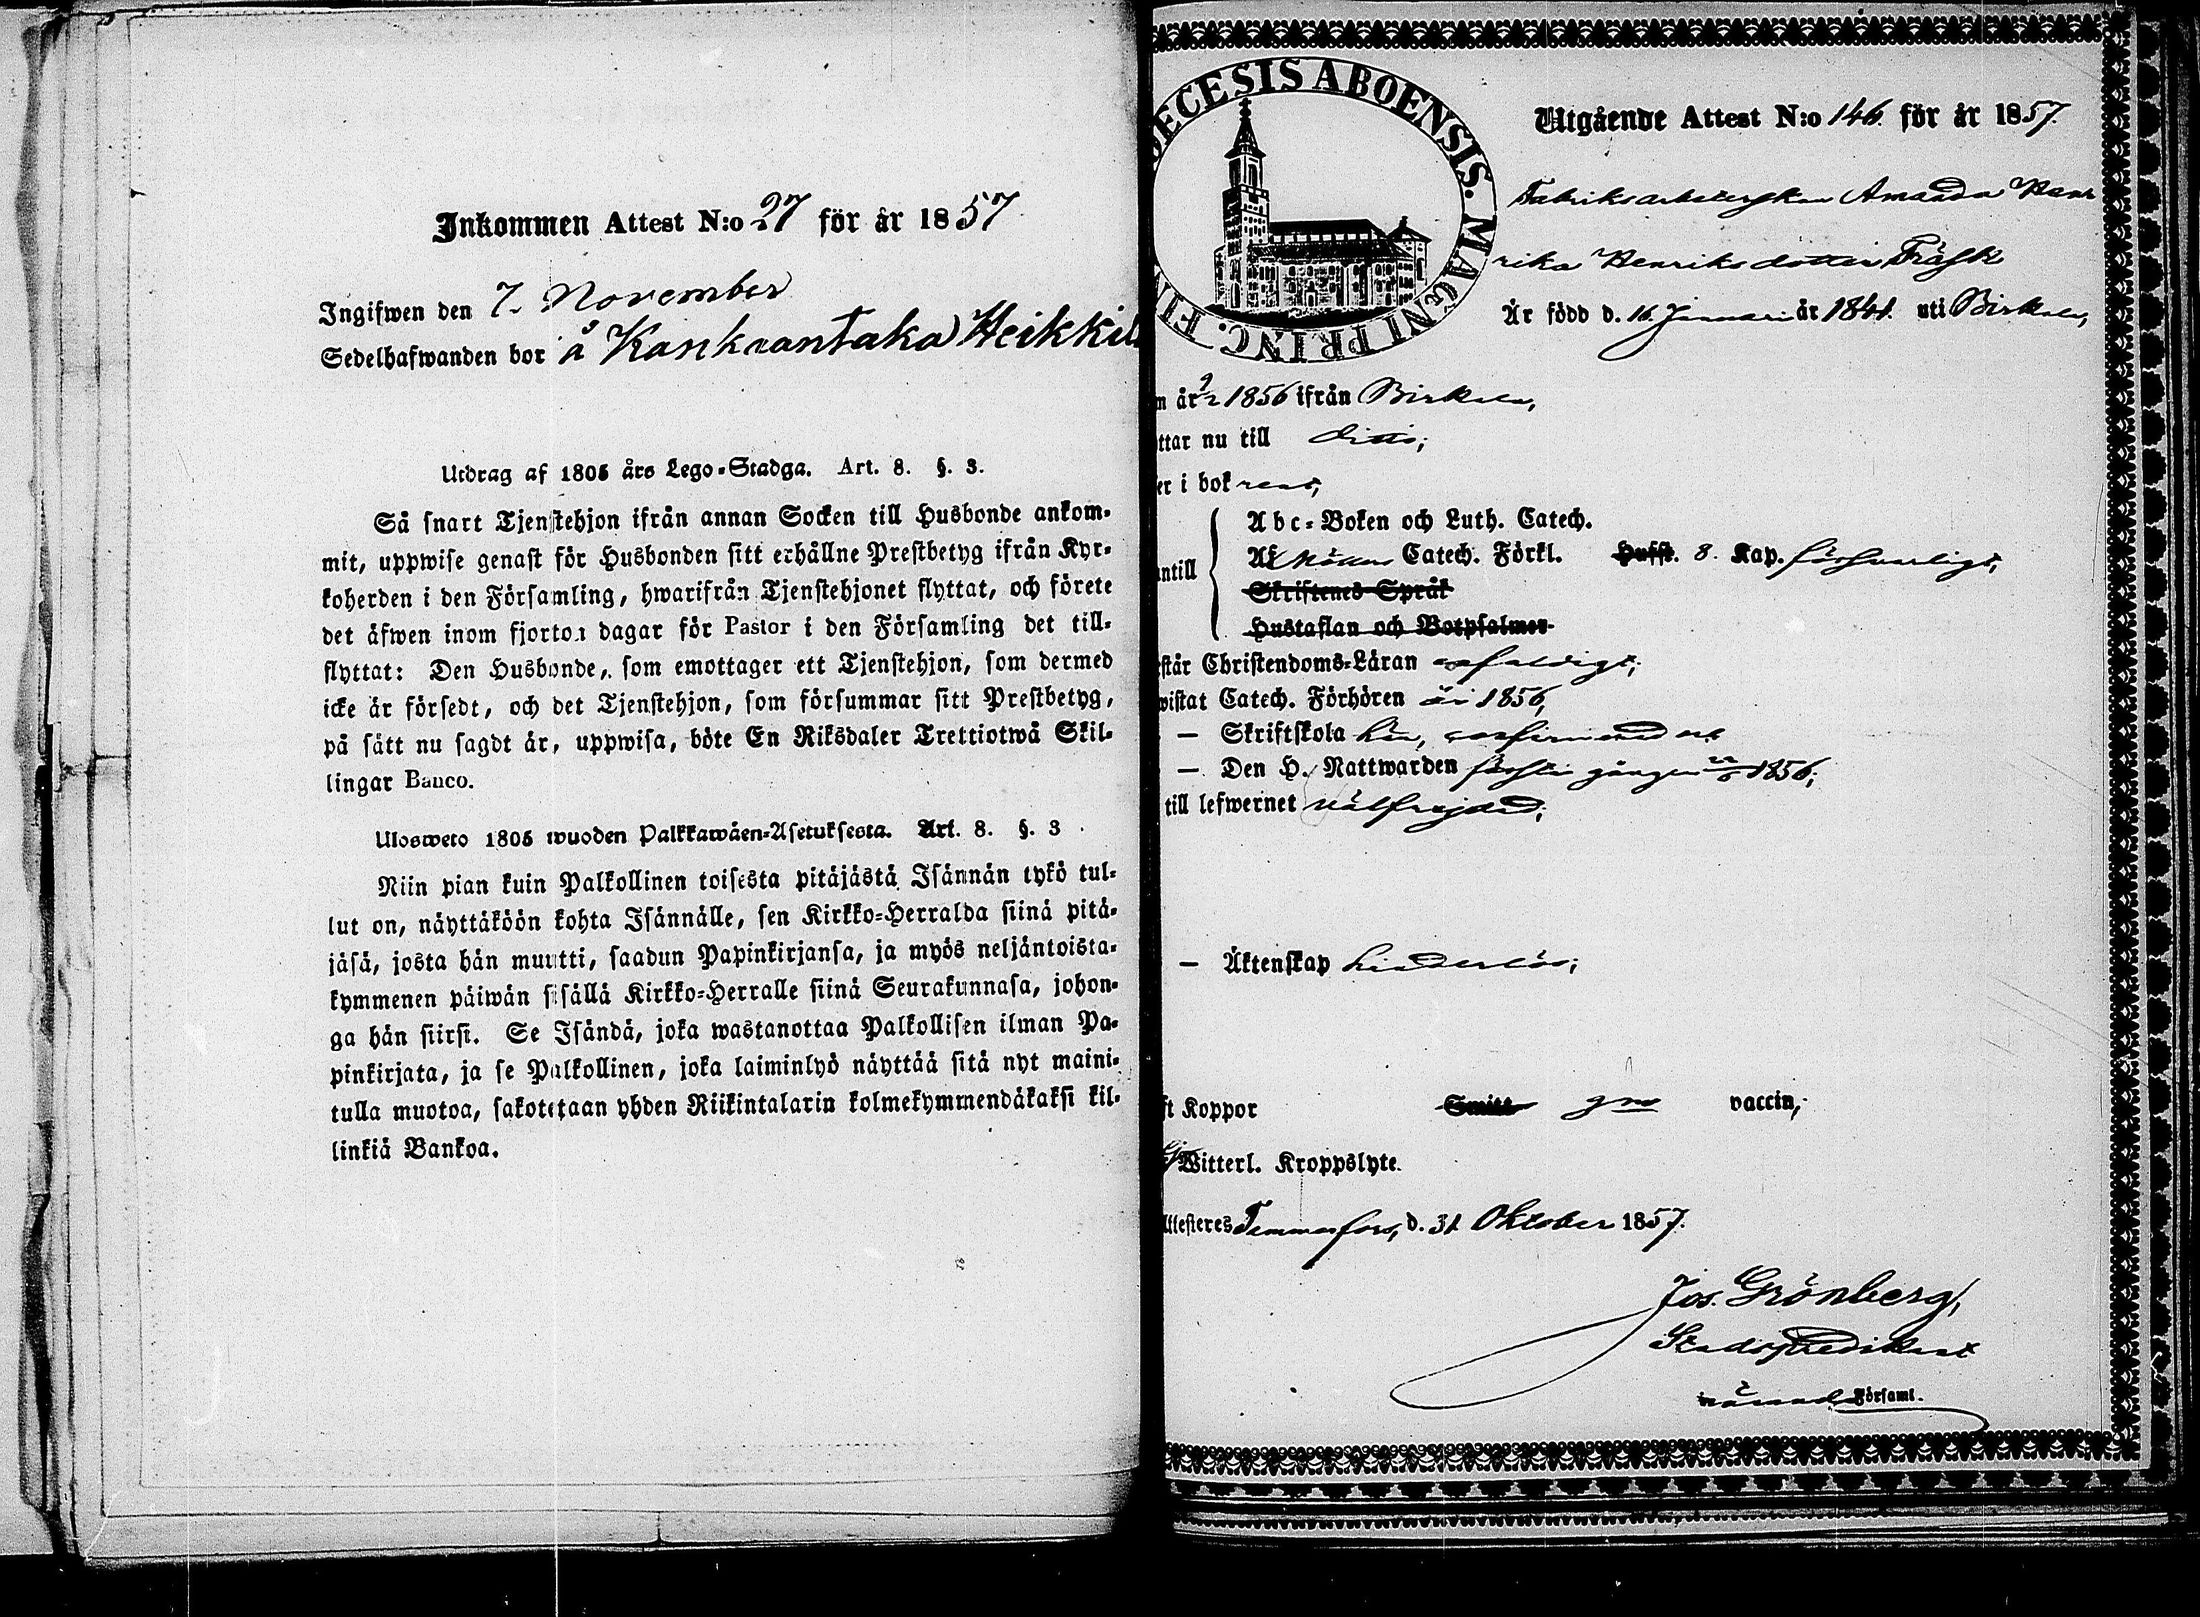 Inkommen Attest N:o 27 för år 1857
Ingifwen den 7. November
Sedelhafwanden bor å Kankaantaka Heikkilä
Utdrag af 1805 års Lego-Stadga. Art. 8. §. 3.
Så snart Tjenstehjon ifrån annan Socken till Husbonde ankom-
mit, uppwise genast för Husbonden sitt erhållne Prestbetyg ifrån Kyr-
koherden i den Församling, hwarifrån Tjenstehjonet flyttat, och förete
det äfwen inom fjorton dagar för Pastor i den Församling det till-
flyttat: Den Husbonde, som emottager ett Tjenstehjon, som dermed
icke är försedt, och det Tjenstehjon, som försummar sitt Prestbetyg,
på sätt nu sagdt är, uppwisa, böte En Riksdaler Trettiotwå Skil-
lingar Banco.
Ulosweto 1805 wuoden Palkkawäen-Asetuksesta. Art. 8. §. 3
Niin pian kuin Palkollinen toisesta pitäjästä Isännän tykö tul-
lut on, näyttäköön kohta Isännälle, sen Kirkko-Herralda siinä pitä-
jäsä, josta hän muutti, saadun Papinkirjansa, ja myös neljäntoista-
kymmenen päiwän sisällä Kirkko-Herralle siinä Seurakunnasa, johon-
ga hän siirsi. Se Isändä, joka wastanottaa Palkollisen ilman Pa-
pinkirjata, ja se Palkollinen, joka laiminlyö näyttää sitä nyt maini-
tulla muotoa, sakotetaan yhden Riikintalarin kolmekymmendäkaksi kil-
linkiä Bankoa.
ECESIS ABOENSIS. MAGNI PRINC. FI
Utgående Attest N:o 146. för år 1857.
Fabriksarbeterskan Amanda Hen
rika Henriksdotter Träsk
Är född d. 16 Januari år 1841. uti Birkala,
m år 9/2 1856 ifrån Birkala,
ttar nu till ditto;
er i bok rent,
Abc-Boken och Luth. Catech.
antill Af Möllers Catech. Förkl. Hufst. 8. Kap. försvarligt,
Skriftenes Språk
Hustaflan och Botpsalmer
står Christendoms-Läran enfaldigt;
wistat Catech. Förhören år 1856,
— Skriftskola här, confirmerad och
— Den H. Nattwarden första gången 1856;
till lefwernet välfrejdad;
— Äktenskap hinderlös;
ft Koppor Smitt gm vaccin,
Witterl. Kroppslyte.
ttesteres Tammerfors, d. 31 Oktober 1857.
Jos. Grönberg,
Stadspredikant
Församl.